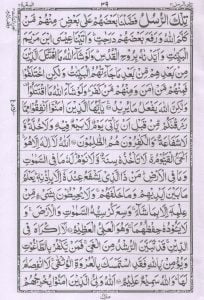 تِلْكَ الرُّسُلُ فَضَّلْنَا بَعْضَهُمْ عَلٰى بَعْضٍ ۘ مِنْهُمْ مَّنْ
كَلَّمَ اللّٰهُ وَرَفَعَ بَعْضَهُمْ دَرَجٰتٍ ؕ وَاٰتَيْنَا عِيْسَى ابْنَ مَرْيَمَ
الْبَيِّنٰتِ وَاَيَّدْنٰهُ بِرُوْحِ الْقُدُسِ ؕ وَلَوْ شَآءَ اللّٰهُ مَا اقْتَتَلَ الَّذِيْنَ
مِنْۢ بَعْدِهِمْ مِّنْۢ بَعْدِ مَا جَآءَتْهُمُ الْبَيِّنٰتُ وَلٰكِنِ اخْتَلَفُوْا
فَمِنْهُمْ مَّنْ اٰمَنَ وَمِنْهُمْ مَّنْ كَفَرَ ؕ وَلَوْ شَآءَ اللّٰهُ مَا اقْتَتَلُوْا
وَلٰكِنَّ اللّٰهَ يَفْعَلُ مَا يُرِيْدُ ۞ يٰٓاَيُّهَا الَّذِيْنَ اٰمَنُوْٓا اَنْفِقُوْا مِمَّا
رَزَقْنٰكُمْ مِّنْ قَبْلِ اَنْ يَّاْتِيَ يَوْمٌ لَّا بَيْعٌ فِيْهِ وَلَا خُلَّةٌ وَّلَا
شَفَاعَةٌ ؕ وَالْكٰفِرُوْنَ هُمُ الظّٰلِمُوْنَ ۞ اَللّٰهُ لَآ اِلٰهَ اِلَّا هُوَ
الْحَيُّ الْقَيُّوْمُ لَا تَاْخُذُهٗ سِنَةٌ وَّلَا نَوْمٌ ؕ لَهٗ مَا فِي السَّمٰوٰتِ
وَمَا فِي الْاَرْضِ ؕ مَنْ ذَا الَّذِيْ يَشْفَعُ عِنْدَهٗٓ اِلَّا بِاِذْنِهٖ ؕ يَعْلَمُ
مَا بَيْنَ اَيْدِيْهِمْ وَمَا خَلْفَهُمْ ۚ وَلَا يُحِيْطُوْنَ بِشَيْءٍ مِّنْ
عِلْمِهٖٓ اِلَّا بِمَا شَآءَ ۚ وَسِعَ كُرْسِيُّهُ السَّمٰوٰتِ وَالْاَرْضَ ۚ
وَلَا يَـُٔوْدُهٗ حِفْظُهُمَا ۚ وَهُوَ الْعَلِيُّ الْعَظِيْمُ ۞ لَآ اِكْرَاهَ فِي
الدِّيْنِ ۙ قَدْ تَّبَيَّنَ الرُّشْدُ مِنَ الْغَيِّ ۚ فَمَنْ يَّكْفُرْ بِالطَّاغُوْتِ
وَيُؤْمِنْۢ بِاللّٰهِ فَقَدِ اسْتَمْسَكَ بِالْعُرْوَةِ الْوُثْقٰى ۗ لَا انْفِصَامَ
لَهَا ؕ وَاللّٰهُ سَمِيْعٌ عَلِيْمٌ ۞ اَللّٰهُ وَلِيُّ الَّذِيْنَ اٰمَنُوْا ۙ يُخْرِجُهُمْ